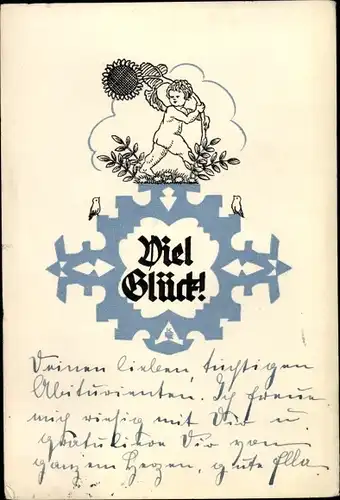 Viel
Glück!
Deinen lieben tüchtigen
Abiturienten. Ich freue
mich riesig mit Dir u.
gratuliere Dir von
ganzem Herzen, gute Ella